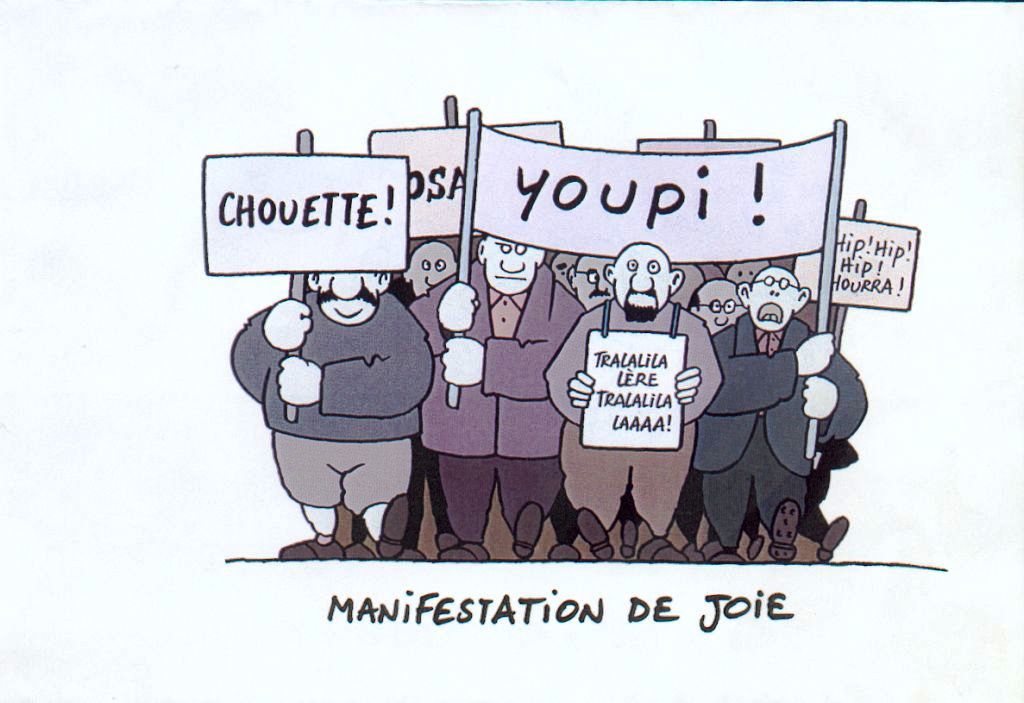 CHOUETTE!
OSA
YOUPI !
HIP! HIP!
HIP!
HOURRA!
TRALALILA
LÈRE
TRALALILA
LAAAA!
MANIFESTATION DE JOIE